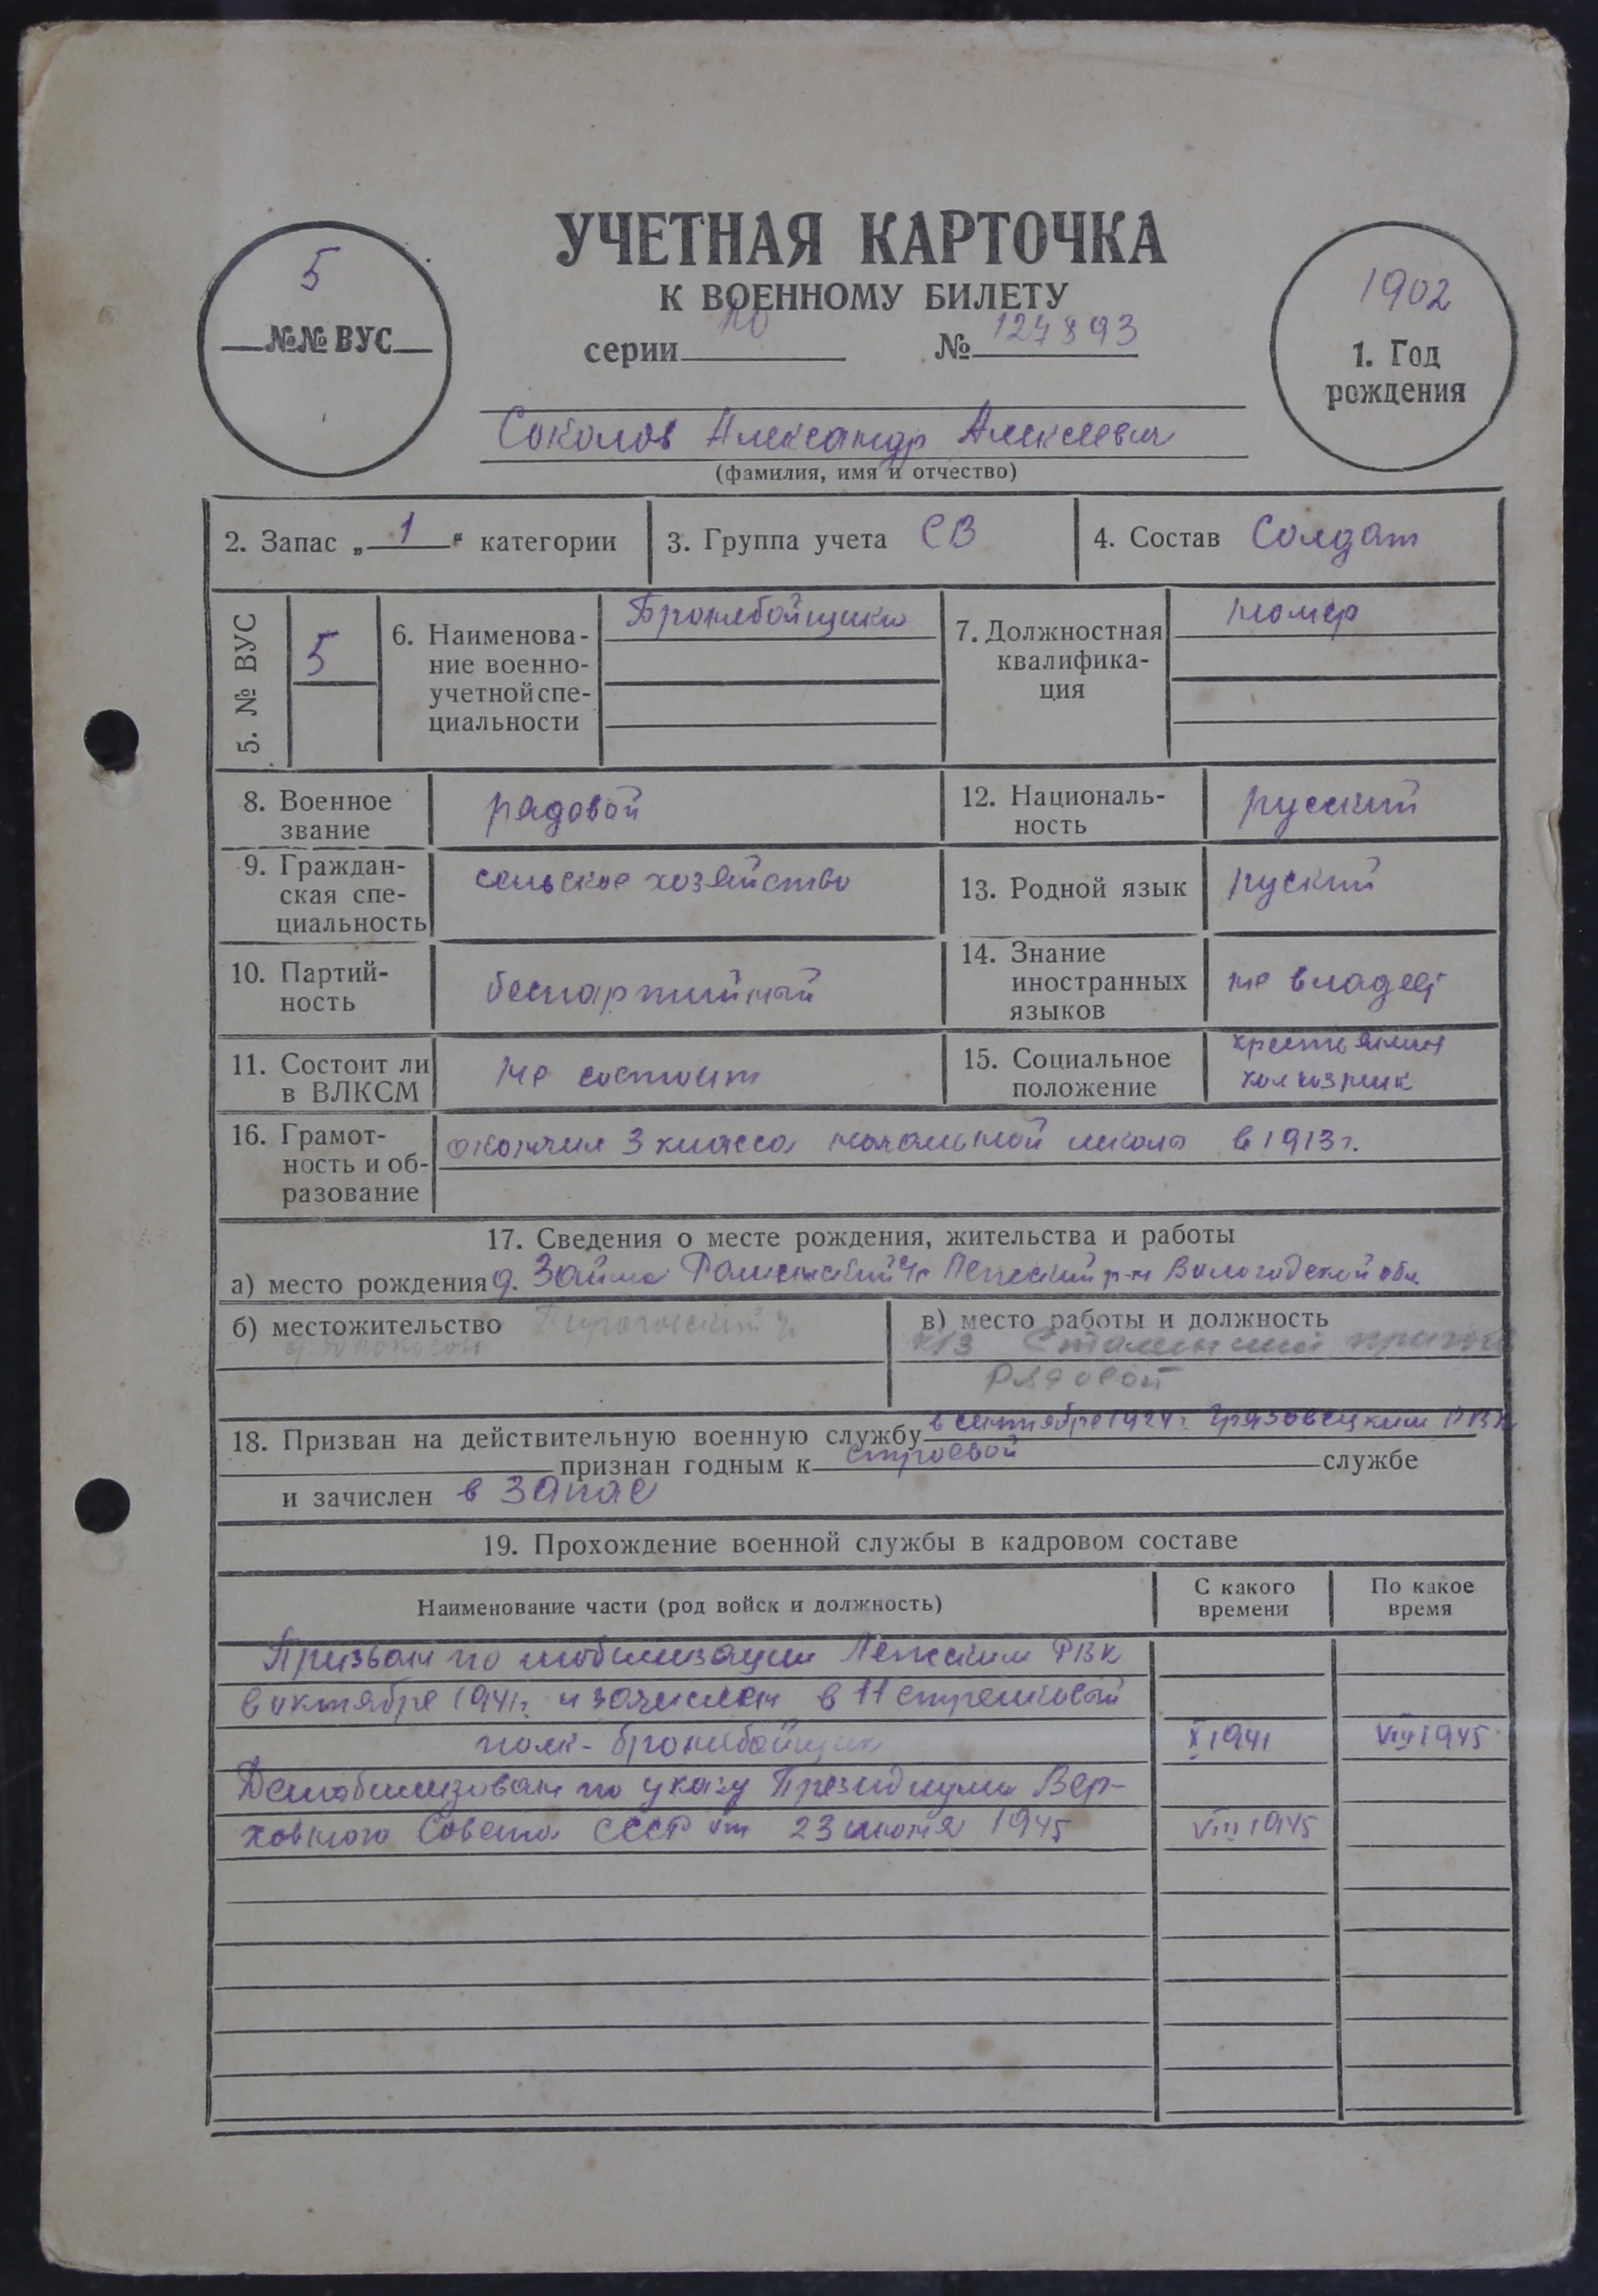 УЧЕТНАЯ КАРТОЧКА
К ВОЕННОМУ БИЛЕТУ
5
№№ ВУС
серии № 127893
1902
1. Год
рождения
Соколов Александр Алексеевич
(фамилия, имя и отчество)
2. Запас „ 1 “ категории
3. Группа учета СВ
4. Состав Солдат
5. № ВУС 5
6. Наименова-
ние военно-
учетной спе-
циальности
Бронебойщики
7. Должностная
квалифика-
ция
номер
8. Военное
звание
рядовой
12. Националь-
ность
русский
9. Граждан-
ская спе-
циальность
сельское хозяйство
13. Родной язык руский
10. Партий-
ность
беспартийный
14. Знание
иностранных
языков
не владеет
11. Состоит ли
в ВЛКСМ
не состоит
15. Социальное
положение
крестьянин
колхозник
16. Грамот-
ность и об-
разование
окончил 3 класса начальной школы в 1913 г.
17. Сведения о месте рождения, жительства и работы
а) место рождения д. Займа Лежский р-н Вологодской обл.
б) местожительство
в) место работы и должность
к/з
рядовой
18. Призван на действительную военную службу в сентябре 1924 г. Грязовецким РВК
признан годным к строевой службе
и зачислен в запас
19. Прохождение военной службы в кадровом составе
Наименование части (род войск и должность)
С какого
времени
По какое
время
Призван по мобилизации Лежским РВК
в октябре 1941 г. и зачислен в 11 стрелковый
полк - бронебойщик X 1941 VIII 1945
Демобилизован по указу Президиума Вер-
ховного Совета СССР от 23 июня 1945 VIII 1945